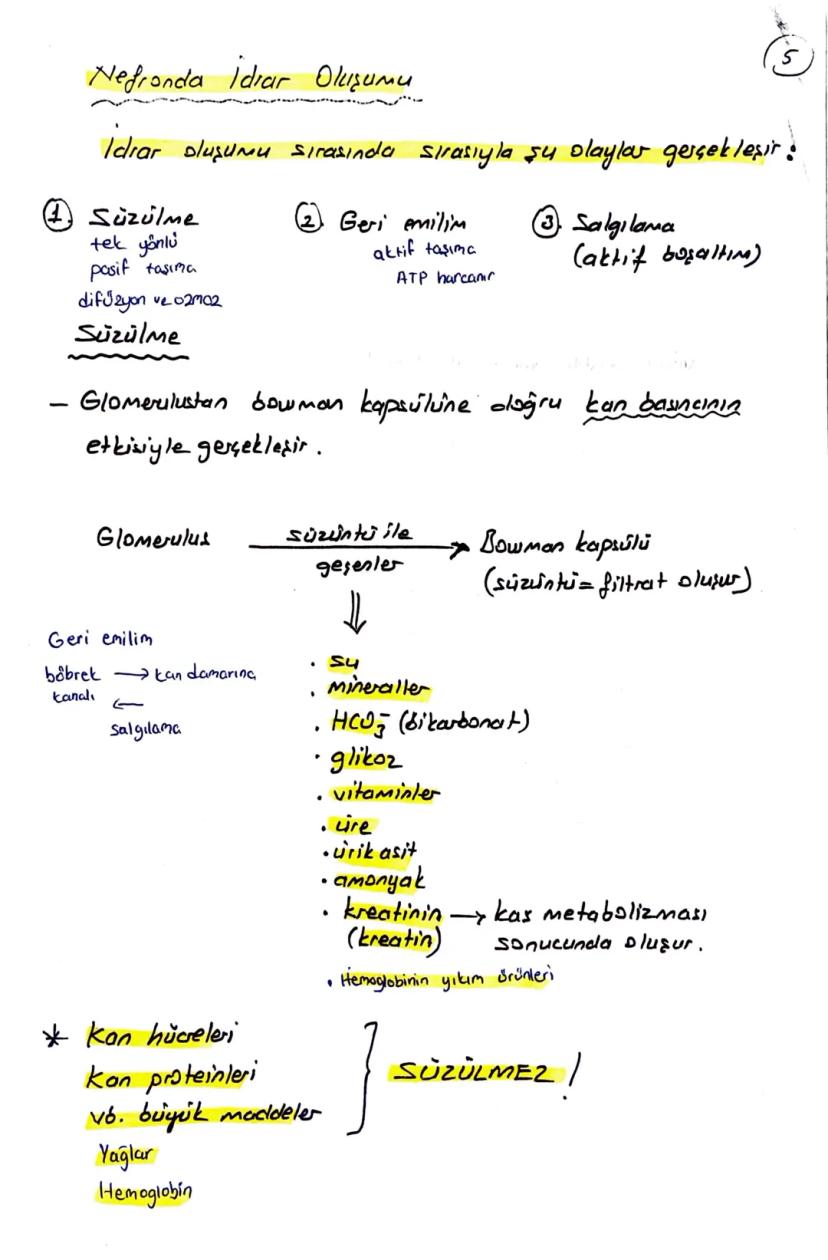 5
Nefronda İdrar Oluşumu
İdrar oluşumu sırasında sırasıyla şu olaylar gerçekleşir:
① Süzülme
tek yönlü
pasif taşıma
difüzyon ve ozmoz
② Geri emilim
aktif taşıma
ATP harcanır
③ Salgılama
(aktif boşaltım)
Süzülme
– Glomerulustan bowman kapsülüne doğru kan basıncının
etkisiyle gerçekleşir.
Glomerulus süzüntü ile → Bowman kapsülü
geçenler (süzüntü = filtrat oluşur)
⇓
Geri emilim
böbrek → kan damarına
kanalı ←
salgılama
· su
· mineraller
· HCO₃⁻ (bikarbonat)
· glikoz
· vitaminler
· üre
· ürik asit
· amonyak
· kreatinin → kas metabolizması
(kreatin) sonucunda oluşur.
· Hemoglobinin yıkım ürünleri
* Kan hücreleri
Kan proteinleri
vb. büyük maddeler
Yağlar
Hemoglobin
} SÜZÜLMEZ!